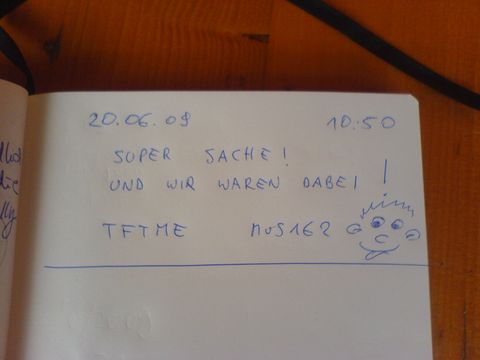 20.06.09 10:50
SUPER SACHE!
UND WIR WAREN DABEI !
TFTME MUS162